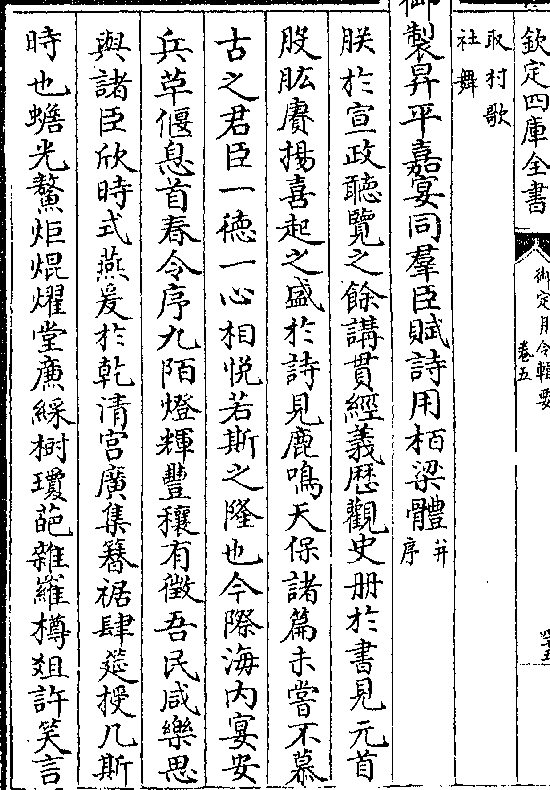 欽定四庫全書
御定月令輯要
卷五
取村歌
社舞
御製昇平嘉宴同羣臣賦詩用柏梁體
并
序
朕於宣政聽覽之餘講貫經義歴觀史册於書見元首
股肱賡揚喜起之盛於詩見鹿鳴天保諸篇未嘗不慕
古之君臣一徳一心相悦若斯之隆也今際海内宴安
兵革偃息首春令序九陌燈輝豐穰有徴吾民咸樂思
與諸臣欣時式燕爰於乾清宫廣集簪裾肆筵授几斯
時也蟾光鰲炬焜燿堂亷綵樹瓊葩雜羅樽爼許笑言